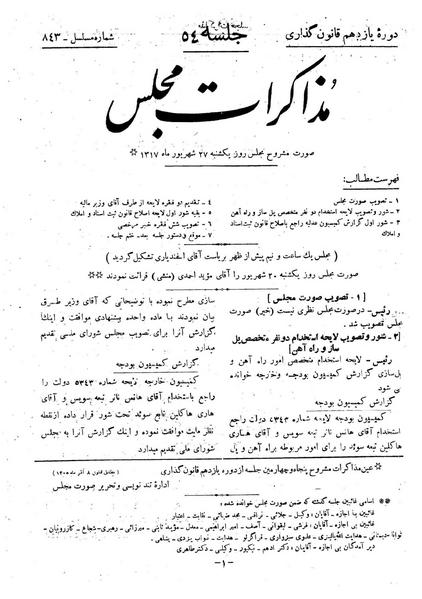 دورهٔ یازدهم قانون گذاری
جلسه ٥٤
شماره مسلسل - ٨٤٣
مذاکرات مجلس
صورت مشروح مجلس روز یکشنبه ٢٧ شهریور ماه ١٣١٧
فهرست مطالب:
١ - تصویب صورت مجلس
٢ - شور و تصویب لایحه استخدام دو نفر متخصص پل ساز و راه آهن
٣ - شور اول گزارش کمیسیون عدلیه راجع باصلاح قانون ثبت اسناد
و املاک
٤ - تقدیم دو فقره لایحه از طرف آقای وزیر مالیه
٥ - بقیه شور اول لایحه اصلاح قانون ثبت اسناد و املاک
٦ - تصویب شش فقره خبر مرخصی
٧ - موقع و دستور جلسه بعد - ختم جلسه
(مجلس یک ساعت و نیم پیش از ظهر بریاست آقای اسفندیاری تشکیل گردید)
صورت مجلس روز یکشنبه ٢٠ شهریور را آقای مؤید احمدی (منشی) قرائت نمودند
[١ - تصویب صورت مجلس]
رئیس - در صورت مجلس نظری نیست (خیر) صورت
مجلس تصویب شد.
[٢ - شور و تصویب لایحه استخدام دو نفر متخصص پل
ساز و راه آهن]
رئیس - لایحه استخدام متخصص امور راه آهن و
پل‌سازی گزارش کمیسیون بودجه و خارجه خوانده
می شود
گزارش کمیسیون بودجه
کمیسیون بودجه لایحه شماره ٥٣٤٣ دولت راجع
استخدام آقای هانس ناتر تبعه سویس و آقای هناری
هاکلین تبعه سوئد را برای امور مربوطه براه آهن و پل
سازی مطرح نموده با توضیحاتی که آقای وزیر طرق
بیان نمودند با ماده واحده پیشنهادی موافقت و اینک
گزارش آنرا برای تصویب مجلس شورای ملی تقدیم
میدارد
گزارش کمیسیون بودجه
کمیسیون خارجه لایحه شماره ٥٣٤٣ دولت را
راجع باستخدام آقای هانس ناتر تبعه سویس و آقای
هاری هاکلین تابع سوئد تحت شور قرار داده از نقطه
نظر خود موافقت نموده و اینک گزارش آنرا به مجلس
شورای ملی تقدیم میدارد
عین مذاکرات مشروح پنجاه و چهارمین جلسه از دوره یازدهم قانون گذاری
(مطابق قانون ٨ آذر ماه ١٣٠٥)
اداره تند نویسی و تحریر صورت مجلس
اسامی غائبین جلسه گذشته که ضمن صورت مجلس خوانده شده:
دیر آمدگان بی اجازه - آقایان: دکتر ادهم - نیکپور - وکیلی - دکتر طاهری
-١-